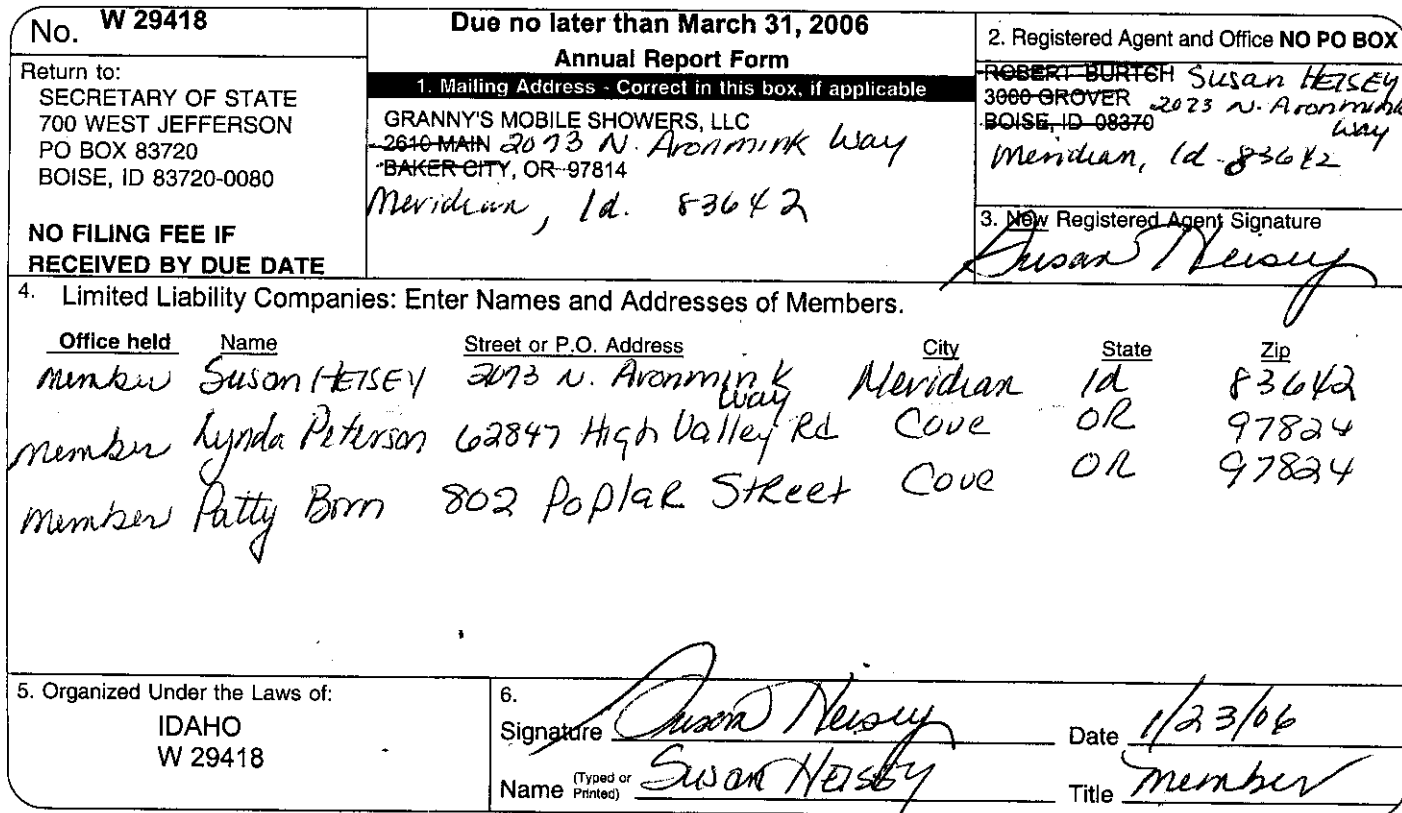 No. W 29418
Return to:
SECRETARY OF STATE
700 WEST JEFFERSON
PO BOX 83720
BOISE, ID 83720-0080
NO FILING FEE IF
RECEIVED BY DUE DATE
Due no later than March 31, 2006
Annual Report Form
1. Mailing Address - Correct in this box, if applicable
GRANNY'S MOBILE SHOWERS, LLC
2610 MAIN 2073 N. Aronmink Way
BAKER CITY, OR 97814
Meridian, Id. 83642
2. Registered Agent and Office NO PO BOX
ROBERT BURTCH Susan HEISEY
3000 GROVER 2073 N. Aronmink
BOISE, ID 08370 Way
Meridian, Id 83642
3. New Registered Agent Signature
Susan Heisey
4. Limited Liability Companies: Enter Names and Addresses of Members.
Office held Name Street or P.O. Address City State Zip
member Susan HEISEY 2073 N. Aronmink Way Meridian Id 83642
member Lynda Peterson 62847 High Valley Rd Cove OR 97824
member Patty Born 802 Poplar Street Cove OR 97824
5. Organized Under the Laws of:
IDAHO
W 29418
6.
Signature Susan Heisey Date 1/23/06
Name (Typed or Printed) Susan HEISEY Title member